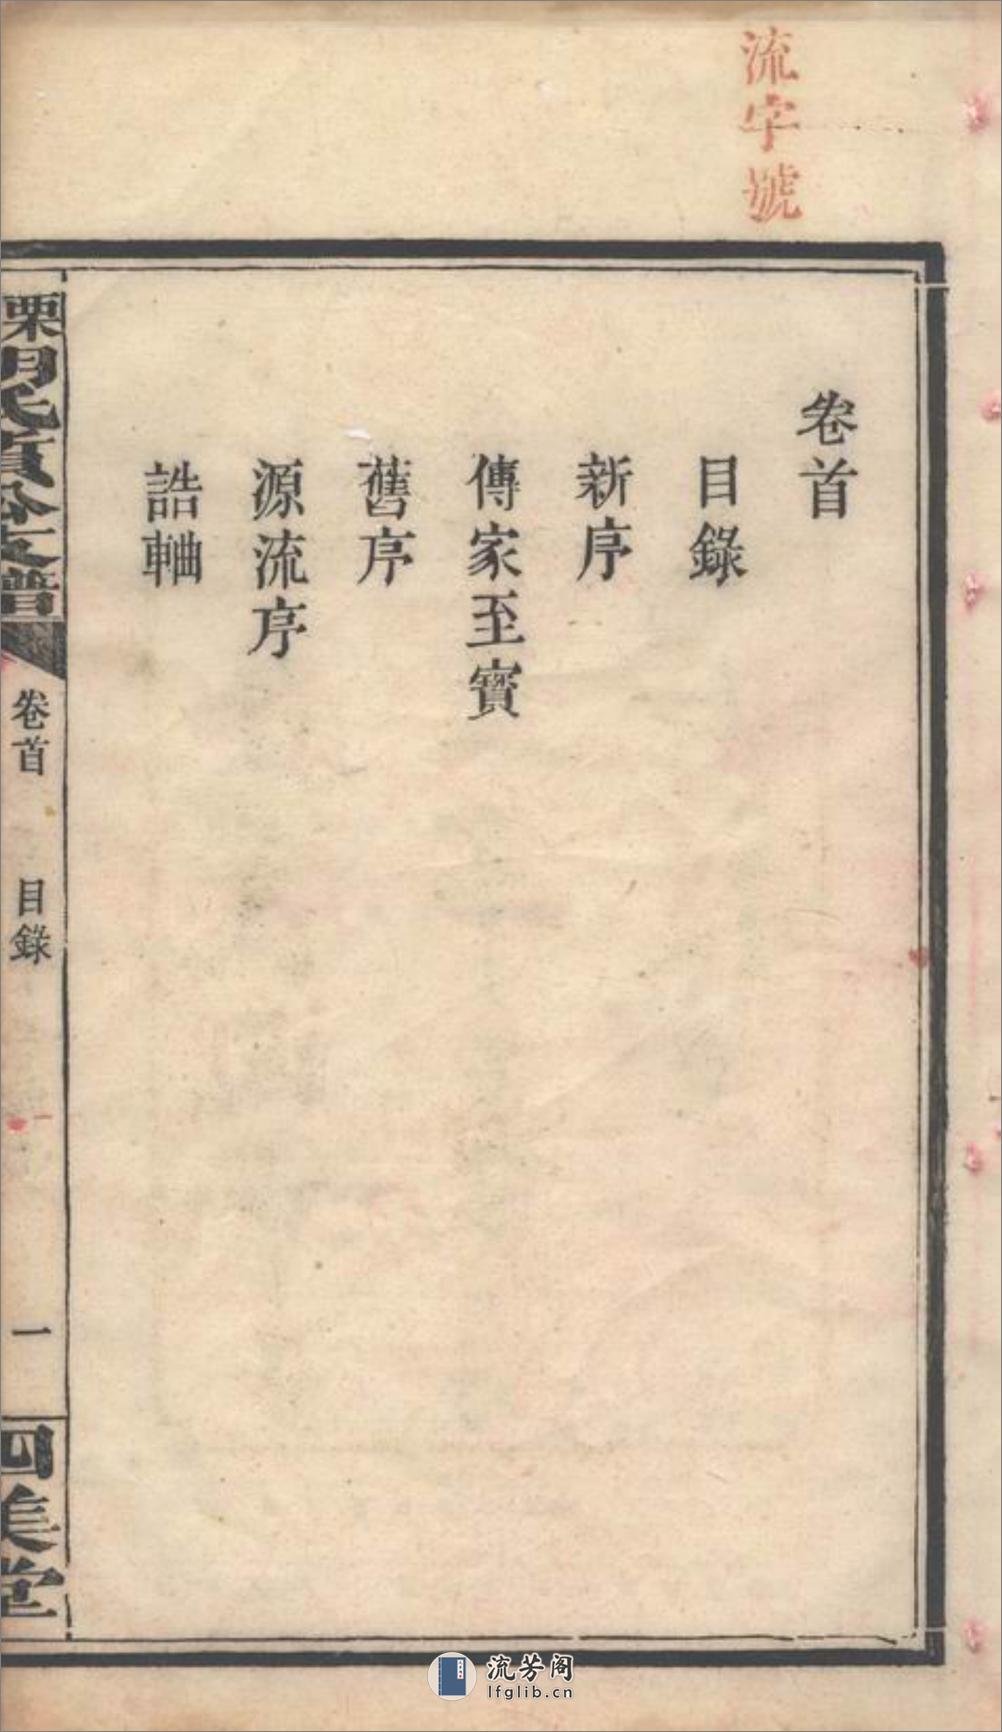 流字號
卷首
目錄
新序
傳家至寶
舊序
源流序
誥軸
栗 胡氏貢公支譜
卷首 目錄 一 四美堂
流芳阁
lfglib.cn